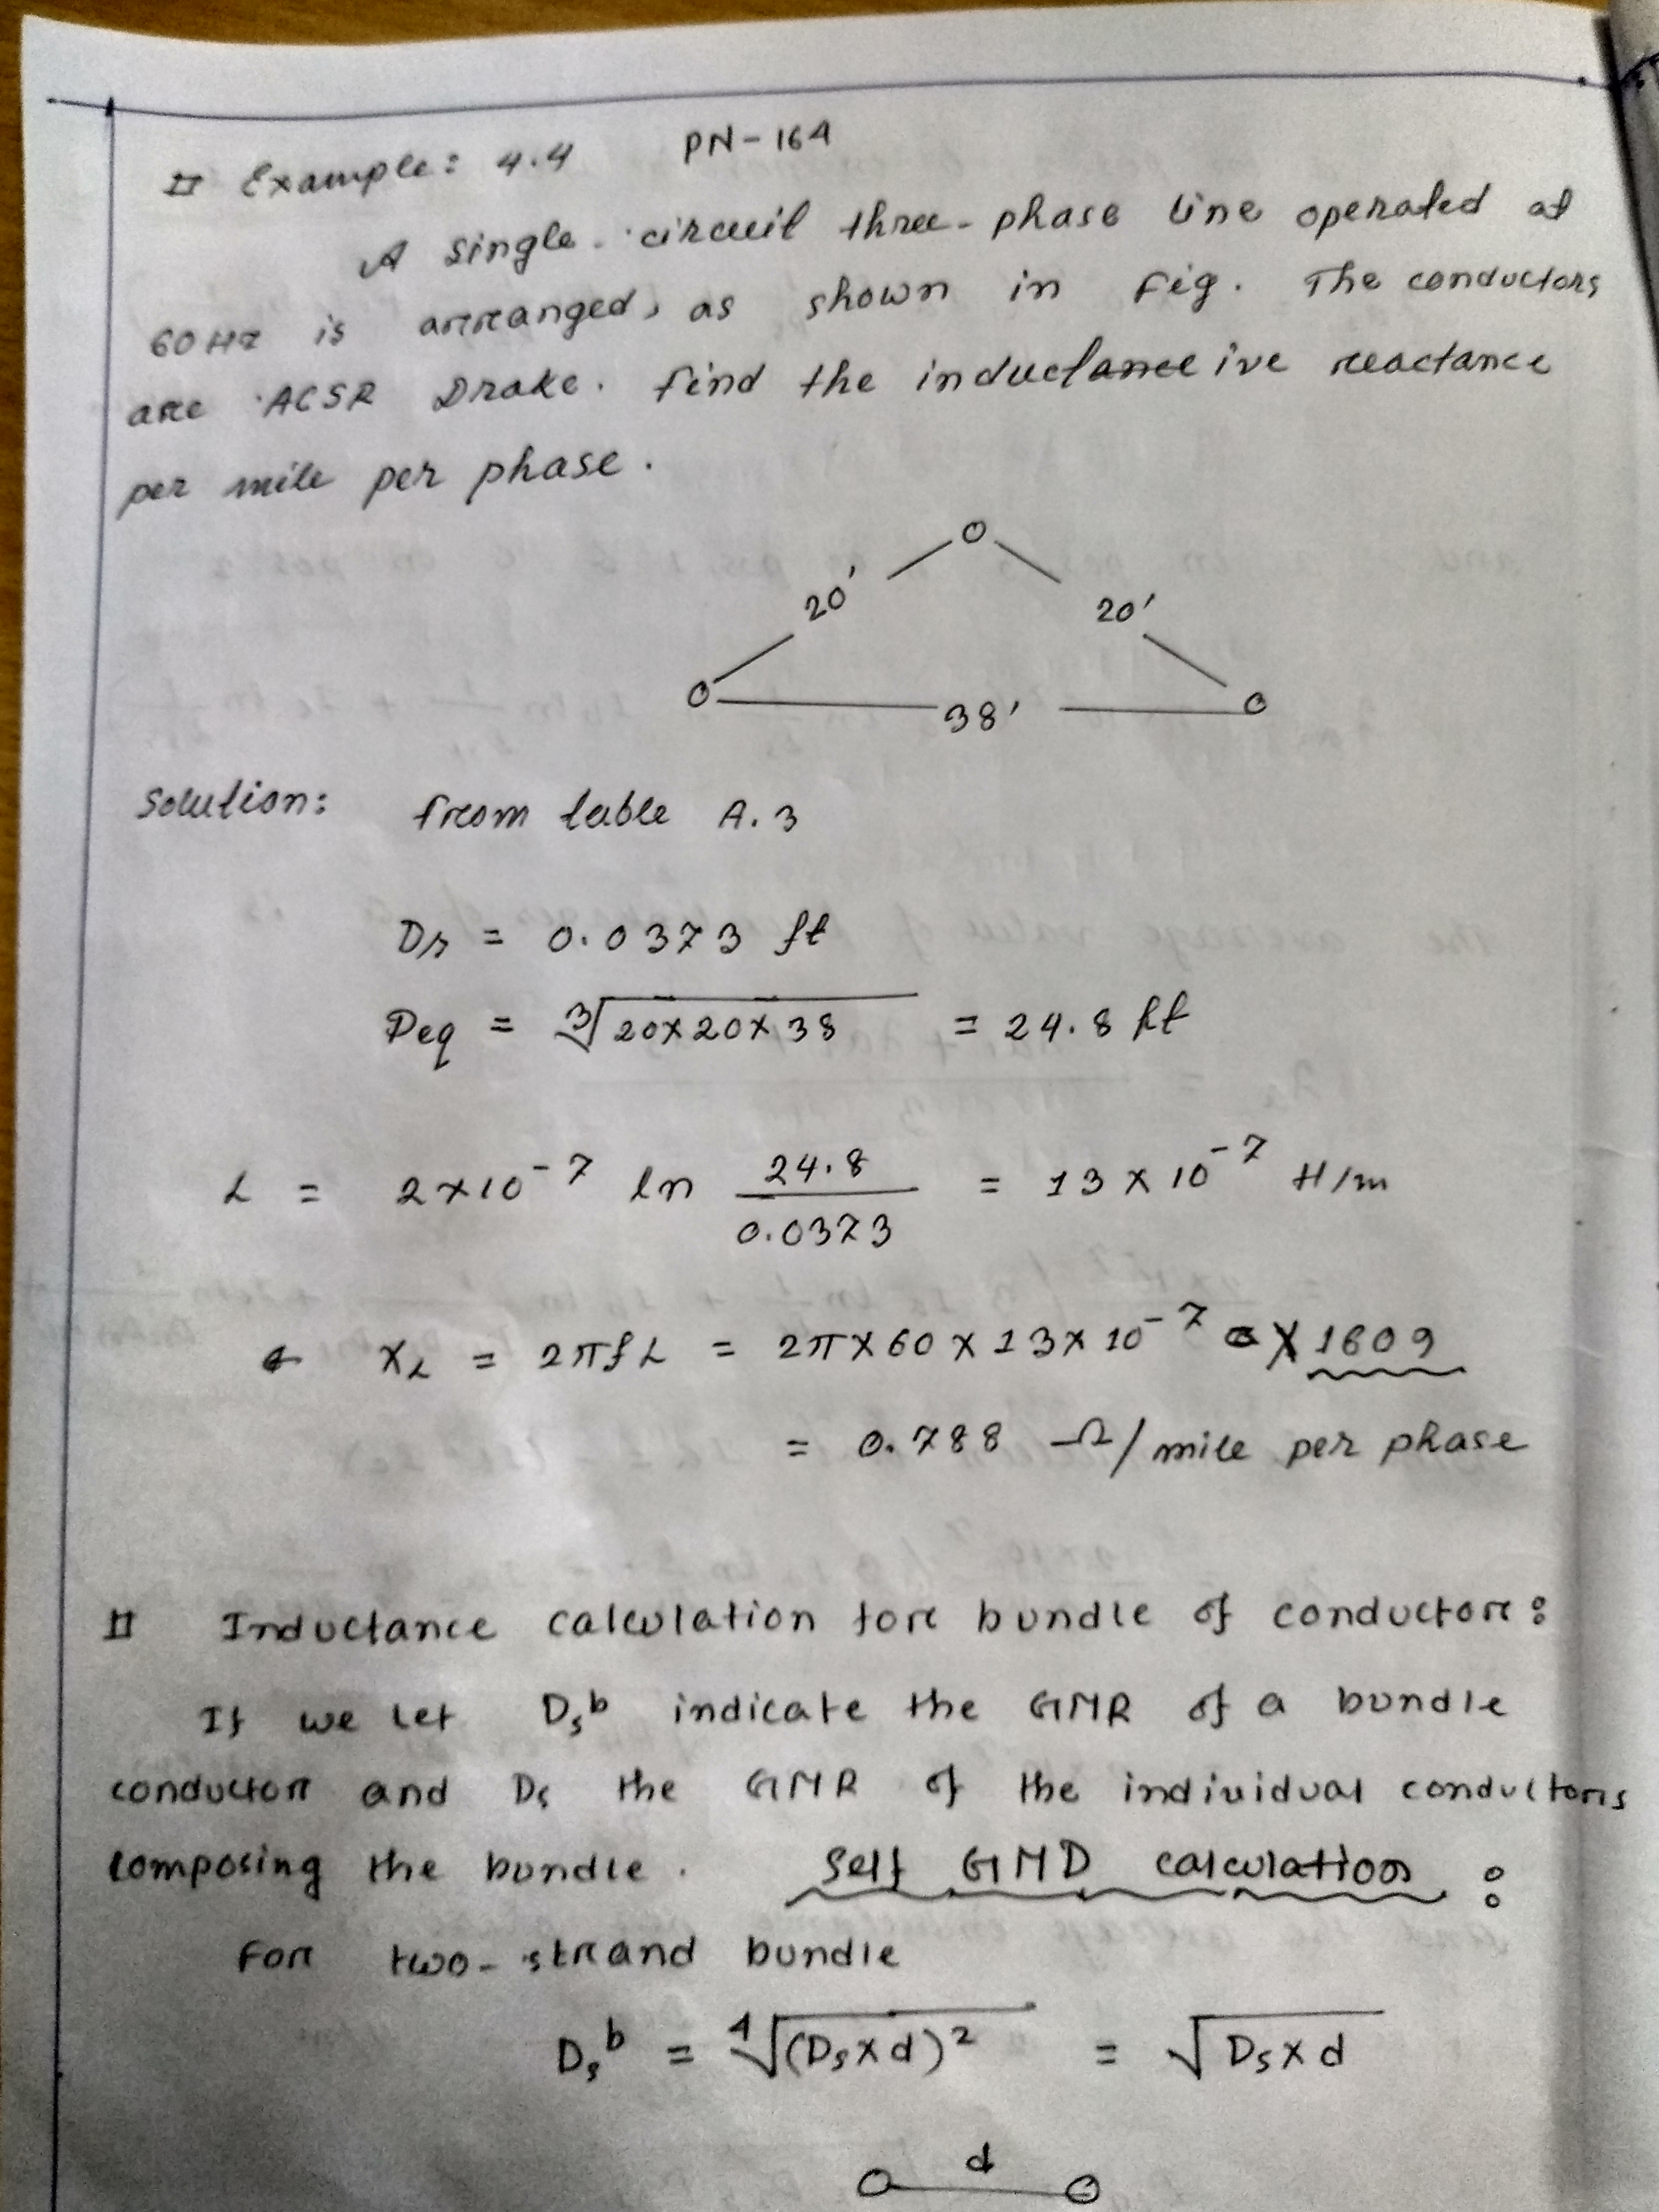 # Example: 4.4 PN-164
A single circuit three-phase line operated at
60Hz is arranged, as shown in fig. The conductors
are ACSR Drake. find the inductance ive reactance
per mile per phase.
20' 20'
38'
Solution: from table A.3
Ds = 0.0373 ft
Deq = ∛(20×20×38) = 24.8 ft
L = 2×10⁻⁷ ln 24.8/0.0373 = 13 × 10⁻⁷ H/m
X_L = 2πfL = 2π×60×13×10⁻⁷ × 1609
= 0.788 Ω/mile per phase
# Inductance calculation for bundle of conductor:
If we let Dsᵇ indicate the GMR of a bundle
conductor and Ds the GMR of the individual conductors
composing the bundle. Self GMD calculation :
For two-strand bundle
Dsᵇ = ∜(Ds×d)² = √(Ds×d)
d